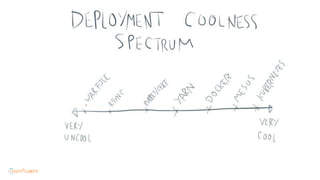 DEPLOYMENT COOLNESS
SPECTRUM
WAR FILE
RSYNC
PUPPET/CHEF
YARN
DOCKER
MESOS
KUBERNETES
VERY
UNCOOL
VERY
COOL
confluent